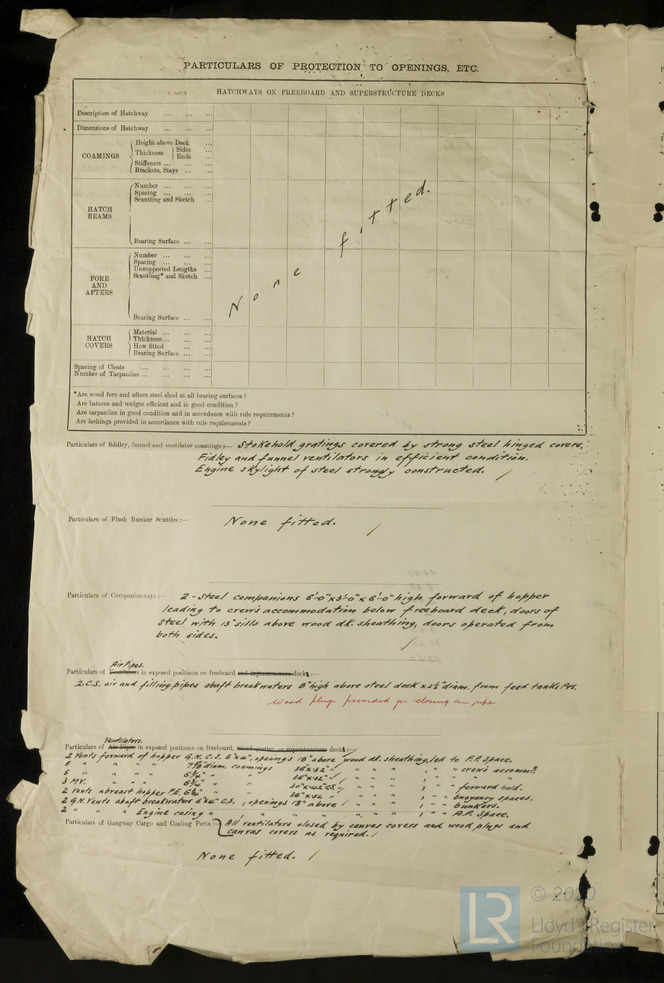 PARTICULARS OF PROTECTION TO OPENINGS, ETC.
HATCHWAYS ON FREEBOARD AND SUPERSTRUCTURE DECKS
Description of Hatchway ... ... ...
Dimensions of Hatchway ... ... ...
COAMINGS
Height above Deck ...
Thickness Sides ...
Ends ...
Stiffeners ... ... ...
Brackets, Stays ... ...
HATCH BEAMS
Number ... ... ...
Spacing ... ... ...
Scantling and Sketch ...
Bearing Surface ... ...
FORE AND AFTERS
Number ... ... ...
Spacing ... ... ...
Unsupported Lengths ...
Scantling* and Sketch ...
Bearing Surface ... ...
HATCH COVERS
Material ... ... ...
Thickness ... ... ...
How fitted ... ...
Bearing Surface ... ...
Spacing of Cleats ... ... ...
Number of Tarpaulins ... ... ...
None fitted.
*Are wood fore and afters steel shod at all bearing surfaces?
Are battens and wedges efficient and in good condition?
Are tarpaulins in good condition and in accordance with rule requirements?
Are lashings provided in accordance with rule requirements?
Particulars of fiddley, funnel and ventilator coamings:— Stokehold gratings covered by strong steel hinged covers.
Fidley and funnel ventilators in efficient condition.
Engine skylight of steel strongly constructed.
Particulars of Flush Bunker Scuttles:—
None fitted.
Particulars of Companionways:—
2 - Steel companions 6'-0" x 3'-0" x 6'-0" high forward of hopper
leading to crew's accommodation below freeboard deck, doors of
steel with 13" sills above wood dk. sheathing, doors operated from
both sides.
Air Pipes.
Particulars of in exposed positions on freeboard decks:—
2 C.S. air and filling pipes abaft breakwaters 8" high above steel deck x 2½" diam. from feed tanks P&S.
Wood plugs provided for closing air pipe
Ventilators.
Particulars of Air Pipes in exposed positions on freeboard, decks:—
2 Vents forward of hopper G.N.C.S. openings 18" above wood dk. sheathing, led to F.P. space.
diam. coamings 36" crew's accomm?.
forward hold.
2 Vents abreast hopper P.E. buoyancy spaces.
2 G.N. Vents abaft breakwater C.S., openings 18" above bunkers.
2 " " Engine casing " A.P. space.
Particulars of Gangway Cargo and Coaling Ports:— All ventilators closed by canvas covers and wood plugs and
canvas covers as required.
None fitted.
LR
© 2020
Lloyd's Register
Foundation